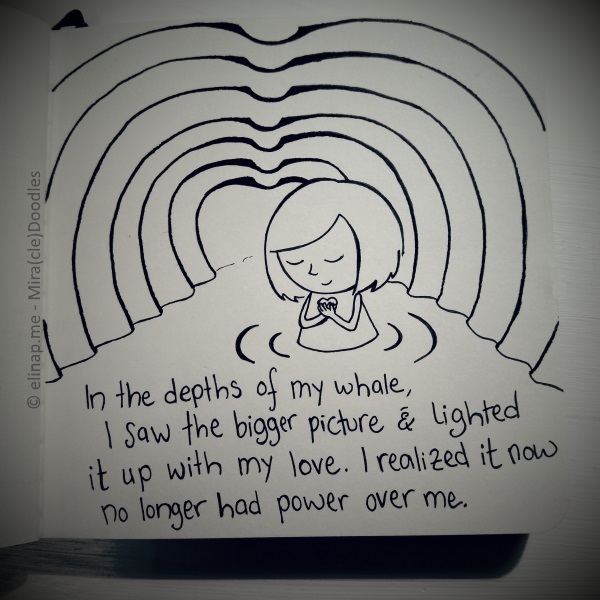 In the depths of my whale,
I saw the bigger picture & lighted
it up with my love. I realized it now
no longer had power over me.
© elinap.me - Mira(cle)Doodles